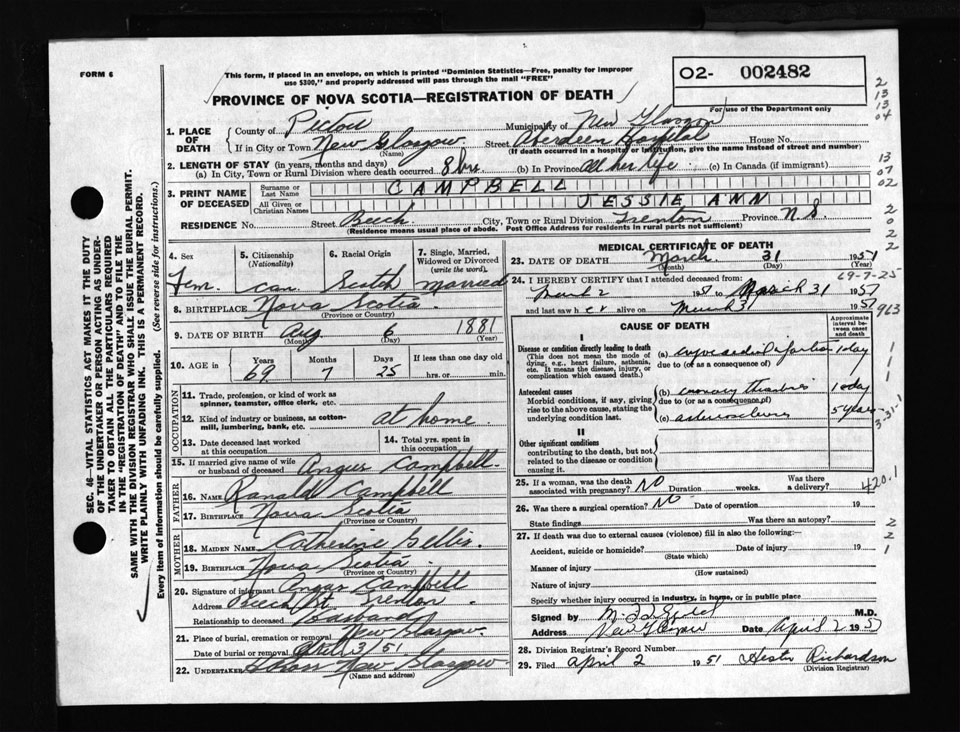 FORM 6
This form, if placed in an envelope, on which is printed "Dominion Statistics—Free, penalty for improper
use $300," and properly addressed will pass through the mail "FREE"
O2- 002482
For use of the Department only
PROVINCE OF NOVA SCOTIA—REGISTRATION OF DEATH
2
13
13
04
13
07
02
2
0
2
2
1. PLACE OF DEATH
County of Pictou Municipality of New Glasgow
If in City or Town New Glasgow Street Aberdeen Hospital House No.
(Name) (If death occurred in a hospital or institution, give the name instead of street and number)
2. LENGTH OF STAY (in years, months and days)
(a) In City, Town or Rural Division where death occurred 8 hrs. (b) In Province All her life (c) In Canada (if immigrant)
3. PRINT NAME OF DECEASED
Surname or Last Name CAMPBELL
All Given or Christian Names JESSIE ANN
RESIDENCE No. Street Beech City, Town or Rural Division Trenton Province N S
(Residence means usual place of abode. Post Office Address for residents in rural parts not sufficient)
4. Sex Fem.
5. Citizenship (Nationality) Can.
6. Racial Origin Scotch
7. Single, Married, Widowed or Divorced (write the word). Married
8. BIRTHPLACE Nova Scotia
(Province or Country)
9. DATE OF BIRTH Aug 6 1881
(Month) (Day) (Year)
10. AGE in Years 69 Months 7 Days 25 If less than one day old
hrs. or min.
OCCUPATION
11. Trade, profession, or kind of work as
spinner, teamster, office clerk, etc.
12. Kind of industry or business, as cotton-
mill, lumbering, bank, etc. at home
13. Date deceased last worked
at this occupation
14. Total yrs. spent in
this occupation
15. If married give name of wife
or husband of deceased Angus Campbell
FATHER
16. Name Ranald Campbell
17. Birthplace Nova Scotia
(Province or Country)
MOTHER
18. MAIDEN NAME Catherine Gillis
19. BIRTHPLACE Nova Scotia
(Province or Country)
20. Signature of informant Angus Campbell
Address Beech St. Trenton
Relationship to deceased Husband
21. Place of burial, cremation or removal New Glasgow
Date of burial or removal April 3/51
22. UNDERTAKER New Glasgow
(Name and address)
MEDICAL CERTIFICATE OF DEATH
23. DATE OF DEATH March 31 1951
(Month) (Day) (Year)
69-7-25
24. I HEREBY CERTIFY that I attended deceased from:
1951 to March 31 1951
and last saw her alive on March 31 1951
963
CAUSE OF DEATH
Approximate interval between onset and death
I
Disease or condition directly leading to death
(This does not mean the mode of
dying, e.g., heart failure, asthenia,
etc. It means the disease, injury, or
complication which caused death.)
(a) myocardial infarction 1 day
due to (or as a consequence of)
Antecedent causes
Morbid conditions, if any, giving
rise to the above cause, stating the
underlying condition last.
(b) coronary thrombosis 1 day
due to (or as a consequence of)
(c) arteriosclerosis 5 years
1
1
1
3-31-1
II
Other significant conditions
contributing to the death, but not
related to the disease or condition
causing it.
25. If a woman, was the death
associated with pregnancy? NO Duration weeks. Was there
a delivery?
420.1
26. Was there a surgical operation? NO Date of operation 19
State findings Was there an autopsy?
27. If death was due to external causes (violence) fill in also the following:—
Accident, suicide or homicide? Date of injury 19
(State which)
Manner of injury
(How sustained)
Nature of injury
Specify whether injury occurred in industry, in home, or in public place
2
2
1
Signed by M.D.
Address New Glasgow Date April 2 1951
28. Division Registrar's Record Number
29. Filed April 2 1951 Hester Richardson
(Division Registrar)
SEC. 46—VITAL STATISTICS ACT MAKES IT THE DUTY
OF THE UNDERTAKER OR PERSON ACTING AS UNDER-
TAKER TO OBTAIN ALL THE PARTICULARS REQUIRED
IN THE "REGISTRATION OF DEATH" AND TO FILE THE
SAME WITH THE DIVISION REGISTRAR WHO SHALL ISSUE THE BURIAL PERMIT.
WRITE PLAINLY WITH UNFADING INK. THIS IS A PERMANENT RECORD.
Every item of information should be carefully supplied. (See reverse side for instructions.)